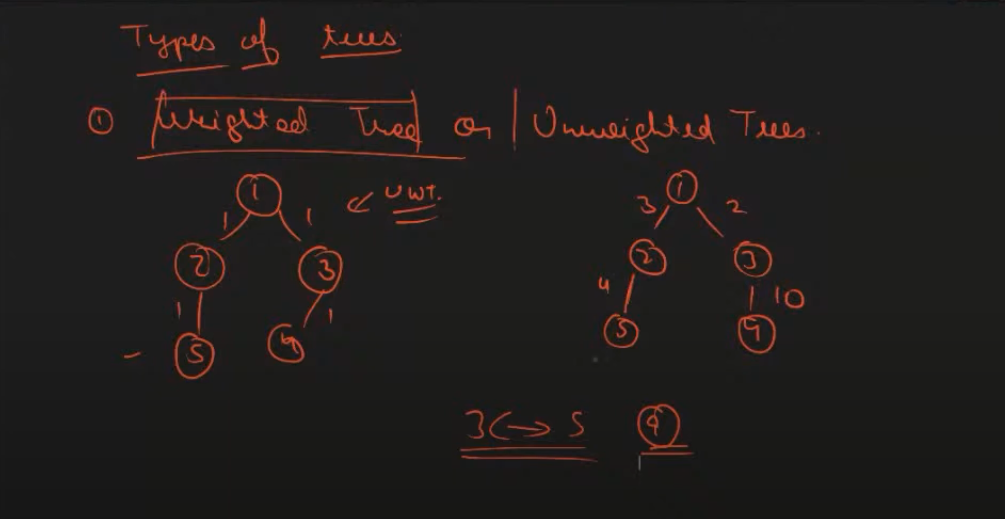 Types of trees
① Weighted Tree or | Unweighted Trees.
1 UWT. 1
1 1 3 2
2 3 2 3
1 1 4 10
5 4 5 4
3 ↔ 5 9